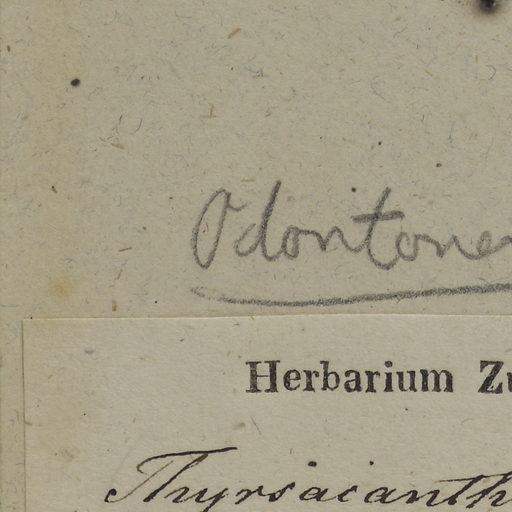 Odontone
Herbarium Zu
Thyrsacanth